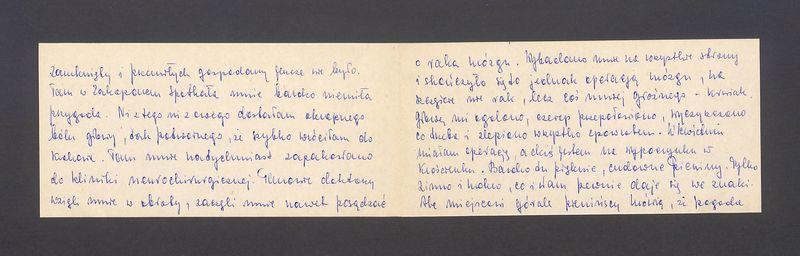 zamknięty i przemiłych gospodarzy jeszcze nie było.
Tam w Zakopanem spotkała mnie bardzo niemiła
przygoda. Ni z tego ni z owego dostałam okropnego
bólu głowy, tak potwornego, że szybko wróciłam do
Krakowa. Tam mnie natychmiast zapakowano
do kliniki neurochirurgicznej. Głównie doktorzy
wzięli mnie w obroty, zaczęli mnie nawet posądzać
o raka mózgu. Wybadano mnie na wszystkie strony
i skończyło się to jednak operacją mózgu, na
szczęście nie rak, lecz coś mniej groźnego - krwiak.
Głowę mi ogolono, czerep przepiłowano, wyczyszczono
co trzeba i zlepiono wszystko z powrotem. W kwietniu
miałam operację, a dziś jestem na wypoczynku w
Krościenku. Bardzo tu pięknie, cudowne Pieniny. Tylko
zimno i mokro, co i Wam pewnie daje się we znaki.
Ale miejscowi górale pienińscy mówią, że pogoda